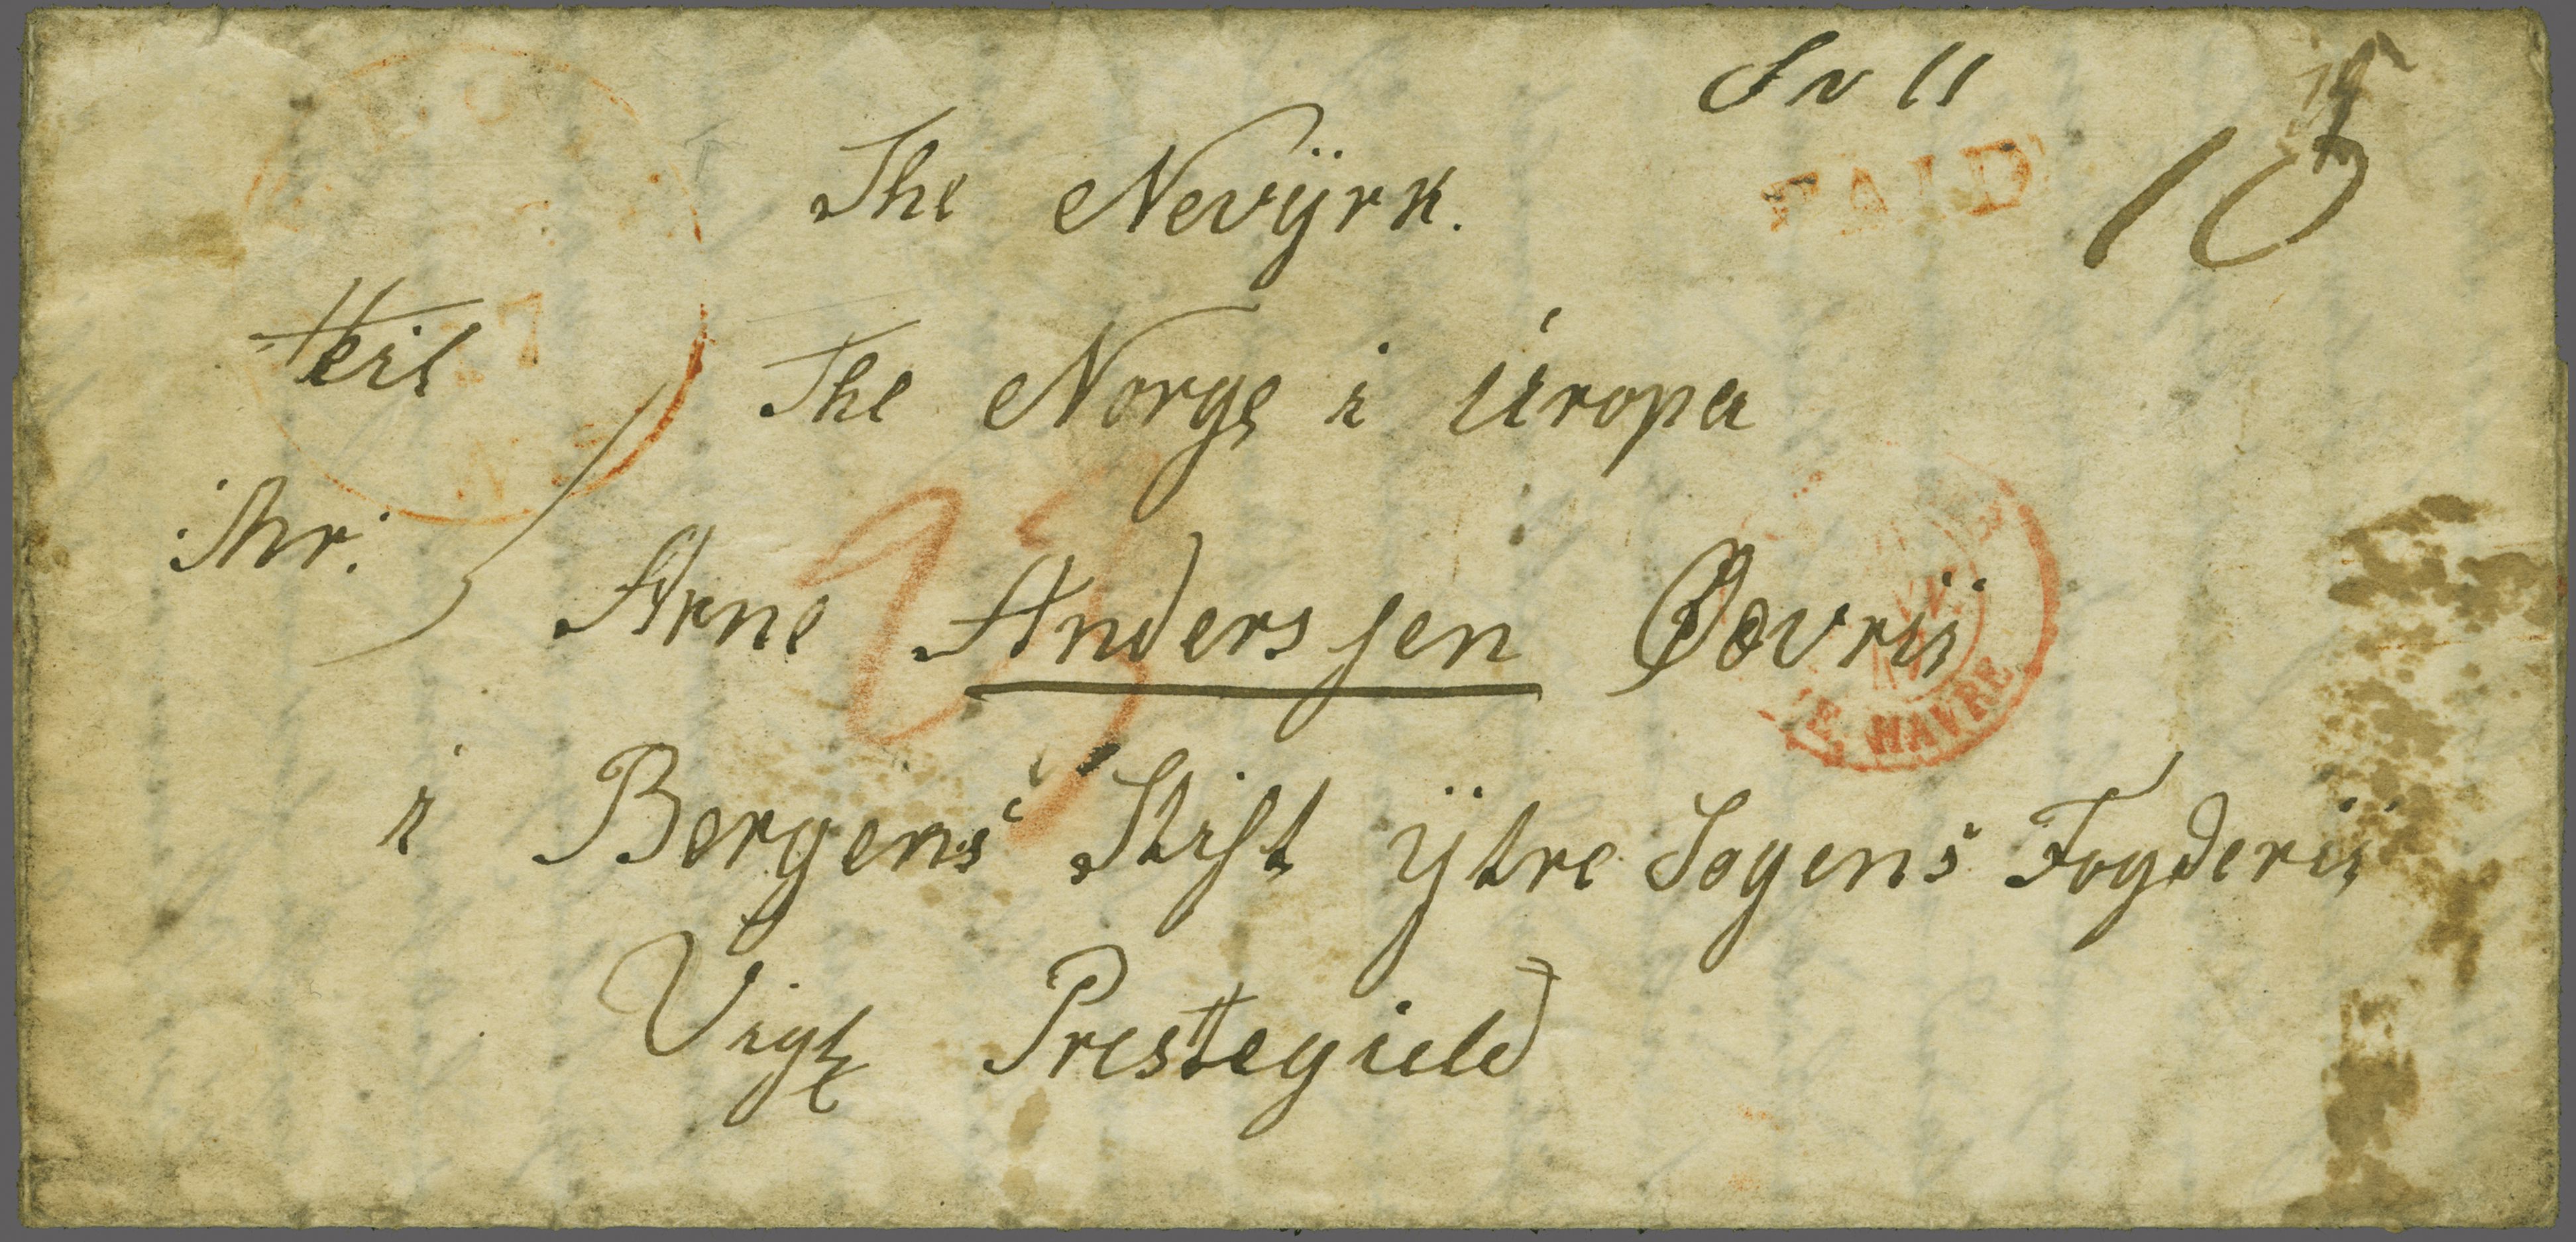 11
PAID 10
The Nevÿrk.
teil The Norge i Úropa
Mr. Arne Anderssen
LE HAVRE
i Bergens Stift ÿtre Sogens Fogderii
Vigs Prestegield